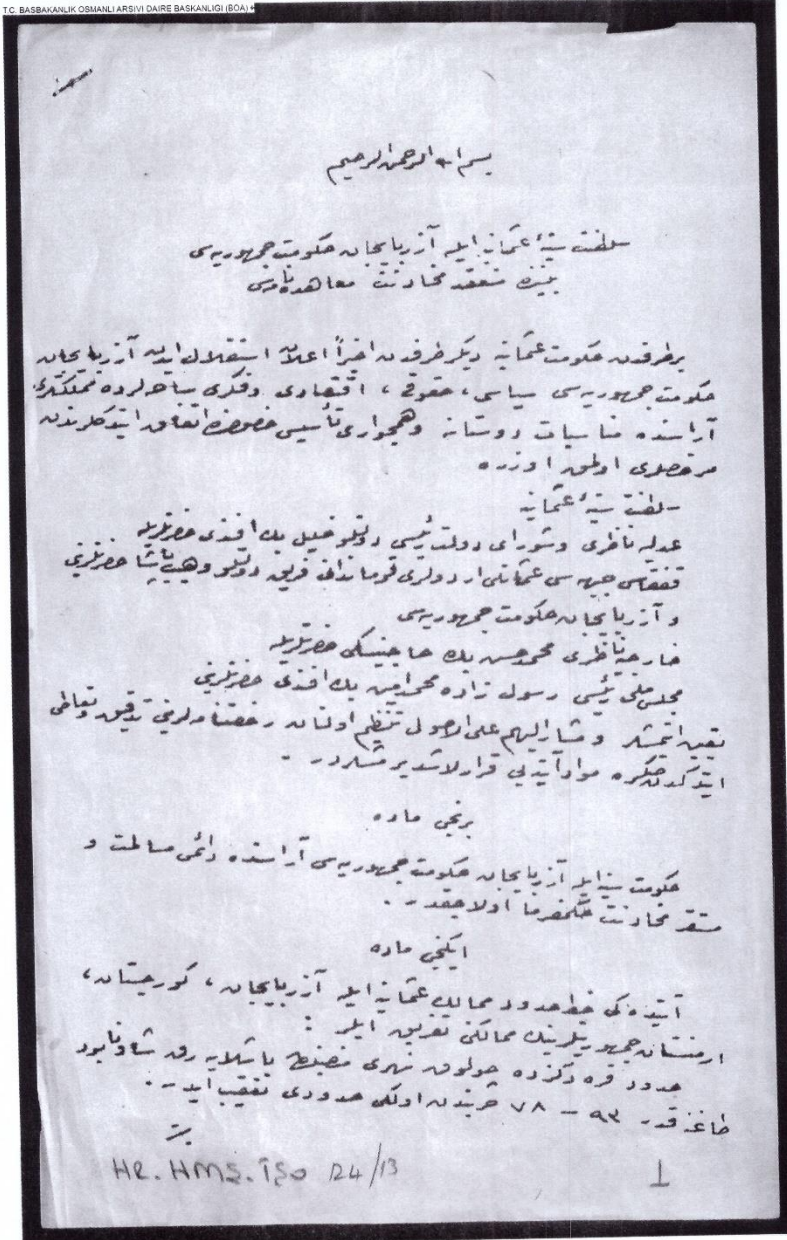 T.C. BASBAKANLIK OSMANLI ARSIVI DAIRE BASKANLIGI (BOA)
بسم الله الرحمن الرحيم
سلطنت سنيۀ عثمانيه ايله آزربايجان حكومت جمهوريه سى
بيننده منعقد مخادنت معاهده نامه سى
بر طرفدن حكومت عثمانيه ديكر طرفدن اخيراً اعلان استقلال ايدن آزربايجان
حكومت جمهوريه سى سياسى، حقوقى، اقتصادى وفكرى ساحه لرده مملكتلرى
آراسنده مناسبات دوستانه وهمجوارى تأسيسى خصوصنده اتفاق ايتدكلرندن
مرخصلرى اولمق اوزره
سلطنت سنيۀ عثمانيه
عدليه ناظرى وشوراى دولت رئيسى دولتلو خليل بك افندى حضرتلريله
قفقاس جبهه سى عثمانلى اردولرى قومandانى فريق دولتلو وهيب پاشا حضرتلرينى
و آزربايجان حكومت جمهوريه سى
خارجيه ناظرى محمد حسن بك حاجينسكى حضرتلريله
مجلس ملى رئيسى رسول زاده محمد امين بك افندى حضرتلرينى
تعيين ايتمشلر و مشاراليهم على الاصول تنظيم اولنان رخصتنامه لرينى تدقيق وتعاطى
ايتدكدن صكره مواد آتيه يى قرارلاشديرمشلردر .
برنجى ماده
حكومت سنيه ايله آزربايجان حكومت جمهوريه سى آراسنده دائمى مسالمت و
مستقر مخادنت حكمفرما اولاجقدر .
ايكنجى ماده
آتيده كى خط حدود ممالك عثمانيه ايله آزربايجان، كورجستان،
ارمنستان جمهوريلرينك ممالكنى تفريق ايلر :
حدود قره دكزده چولوق نهرى منصبندن باشلايه رق شاونابود
طاغنه قدر ٩٣ - ٧٨ حربندن اولكى حدودى تعقيب ايدر .
HR. HMŞ. İŞO 124/13
1